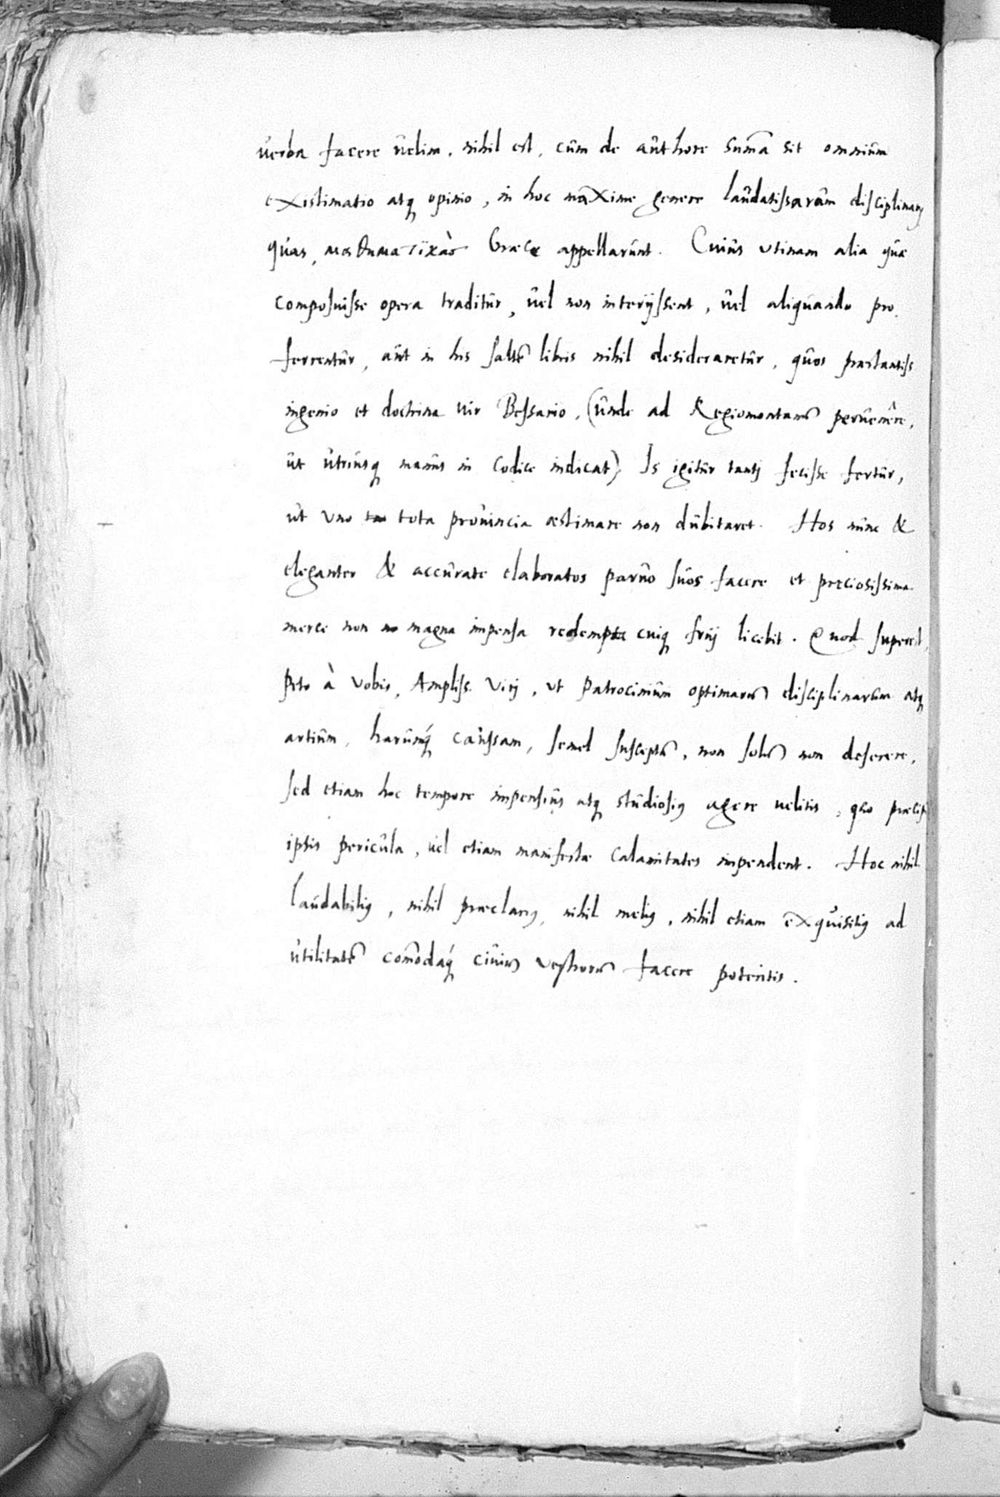 verba facere uelim, nihil est, cum de authore summa sit omnium
existimatio atq opinio, in hoc maxime genere laudatissarum disciplinarum
quas, μαθηματικὰς Graece appellarunt. Cuius utinam alia quae
composuisse opera traditur, uel non interijssent, uel aliquando pro
ferrentur, aut in his saltem libris nihil desideraretur, quos praestantiss
ingenio et doctrina uir Bessario, (unde ad Regiomontanum peruenere,
ut utriusq manus in Codice indicat). Is igitur tanti fecisse fertur,
ut uno tota prouincia aestimare non dubitaret. Hos nunc &
eleganter & accurate elaboratos paruo suos facere et preciosissima
merce non magna impensa redempta cuiq frui licebit. Quod superest,
Peto à vobis, Ampliss. Viri, ut Patrocinium optimarum disciplinarum atq
artium, harumq́ caussam, semel susceptam, non solum non deserere,
sed etiam hoc tempore impensius atq studiosius agere uelitis, quo praecip
ipsis pericula, uel etiam manifestae calamitates impendent. Hoc nihil
laudabilius, nihil praeclarius, nihil melius, nihil etiam exquisitius ad
utilitatem comodaq́ ciuium vestrorum facere poteritis.